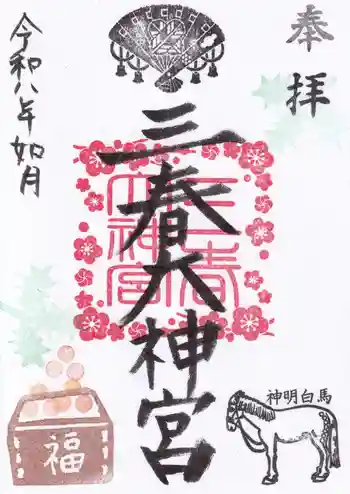 奉拝
三春大神宮
三春大神宮
令和八年如月
神明白馬
福